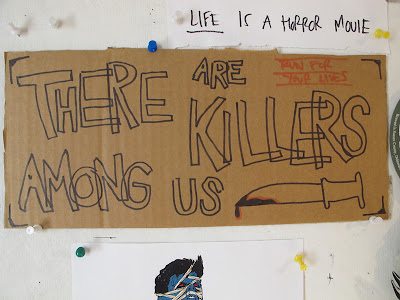 LIFE IS A HORROR MOVIE
RUN FOR
YOUR LIVES
THERE ARE
KILLERS
AMONG US